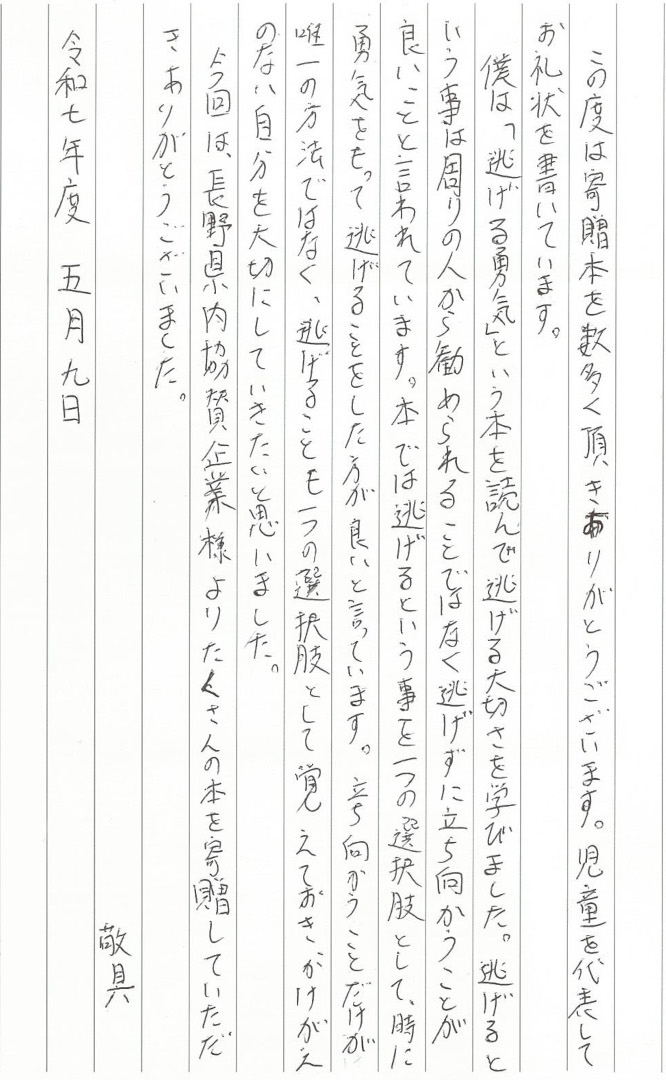 この度は寄贈本を数多く頂きありがとうございます。児童を代表して
お礼状を書いています。
僕は「逃げる勇気」という本を読んで逃げる大切さを学びました。逃げると
いう事は周りの人から勧められることではなく逃げずに立ち向かうことが
良いことと言われています。本では逃げるという事を一つの選択肢として、時に
勇気をもって逃げることをした方が良いと言っています。立ち向かうことだけが
唯一の方法ではなく、逃げることも一つの選択肢として覚えておき、かけがえ
のない自分を大切にしていきたいと思いました。
今回は、長野県内協賛企業様よりたくさんの本を寄贈していただ
きありがとうございました。
敬具
令和七年度 五月九日